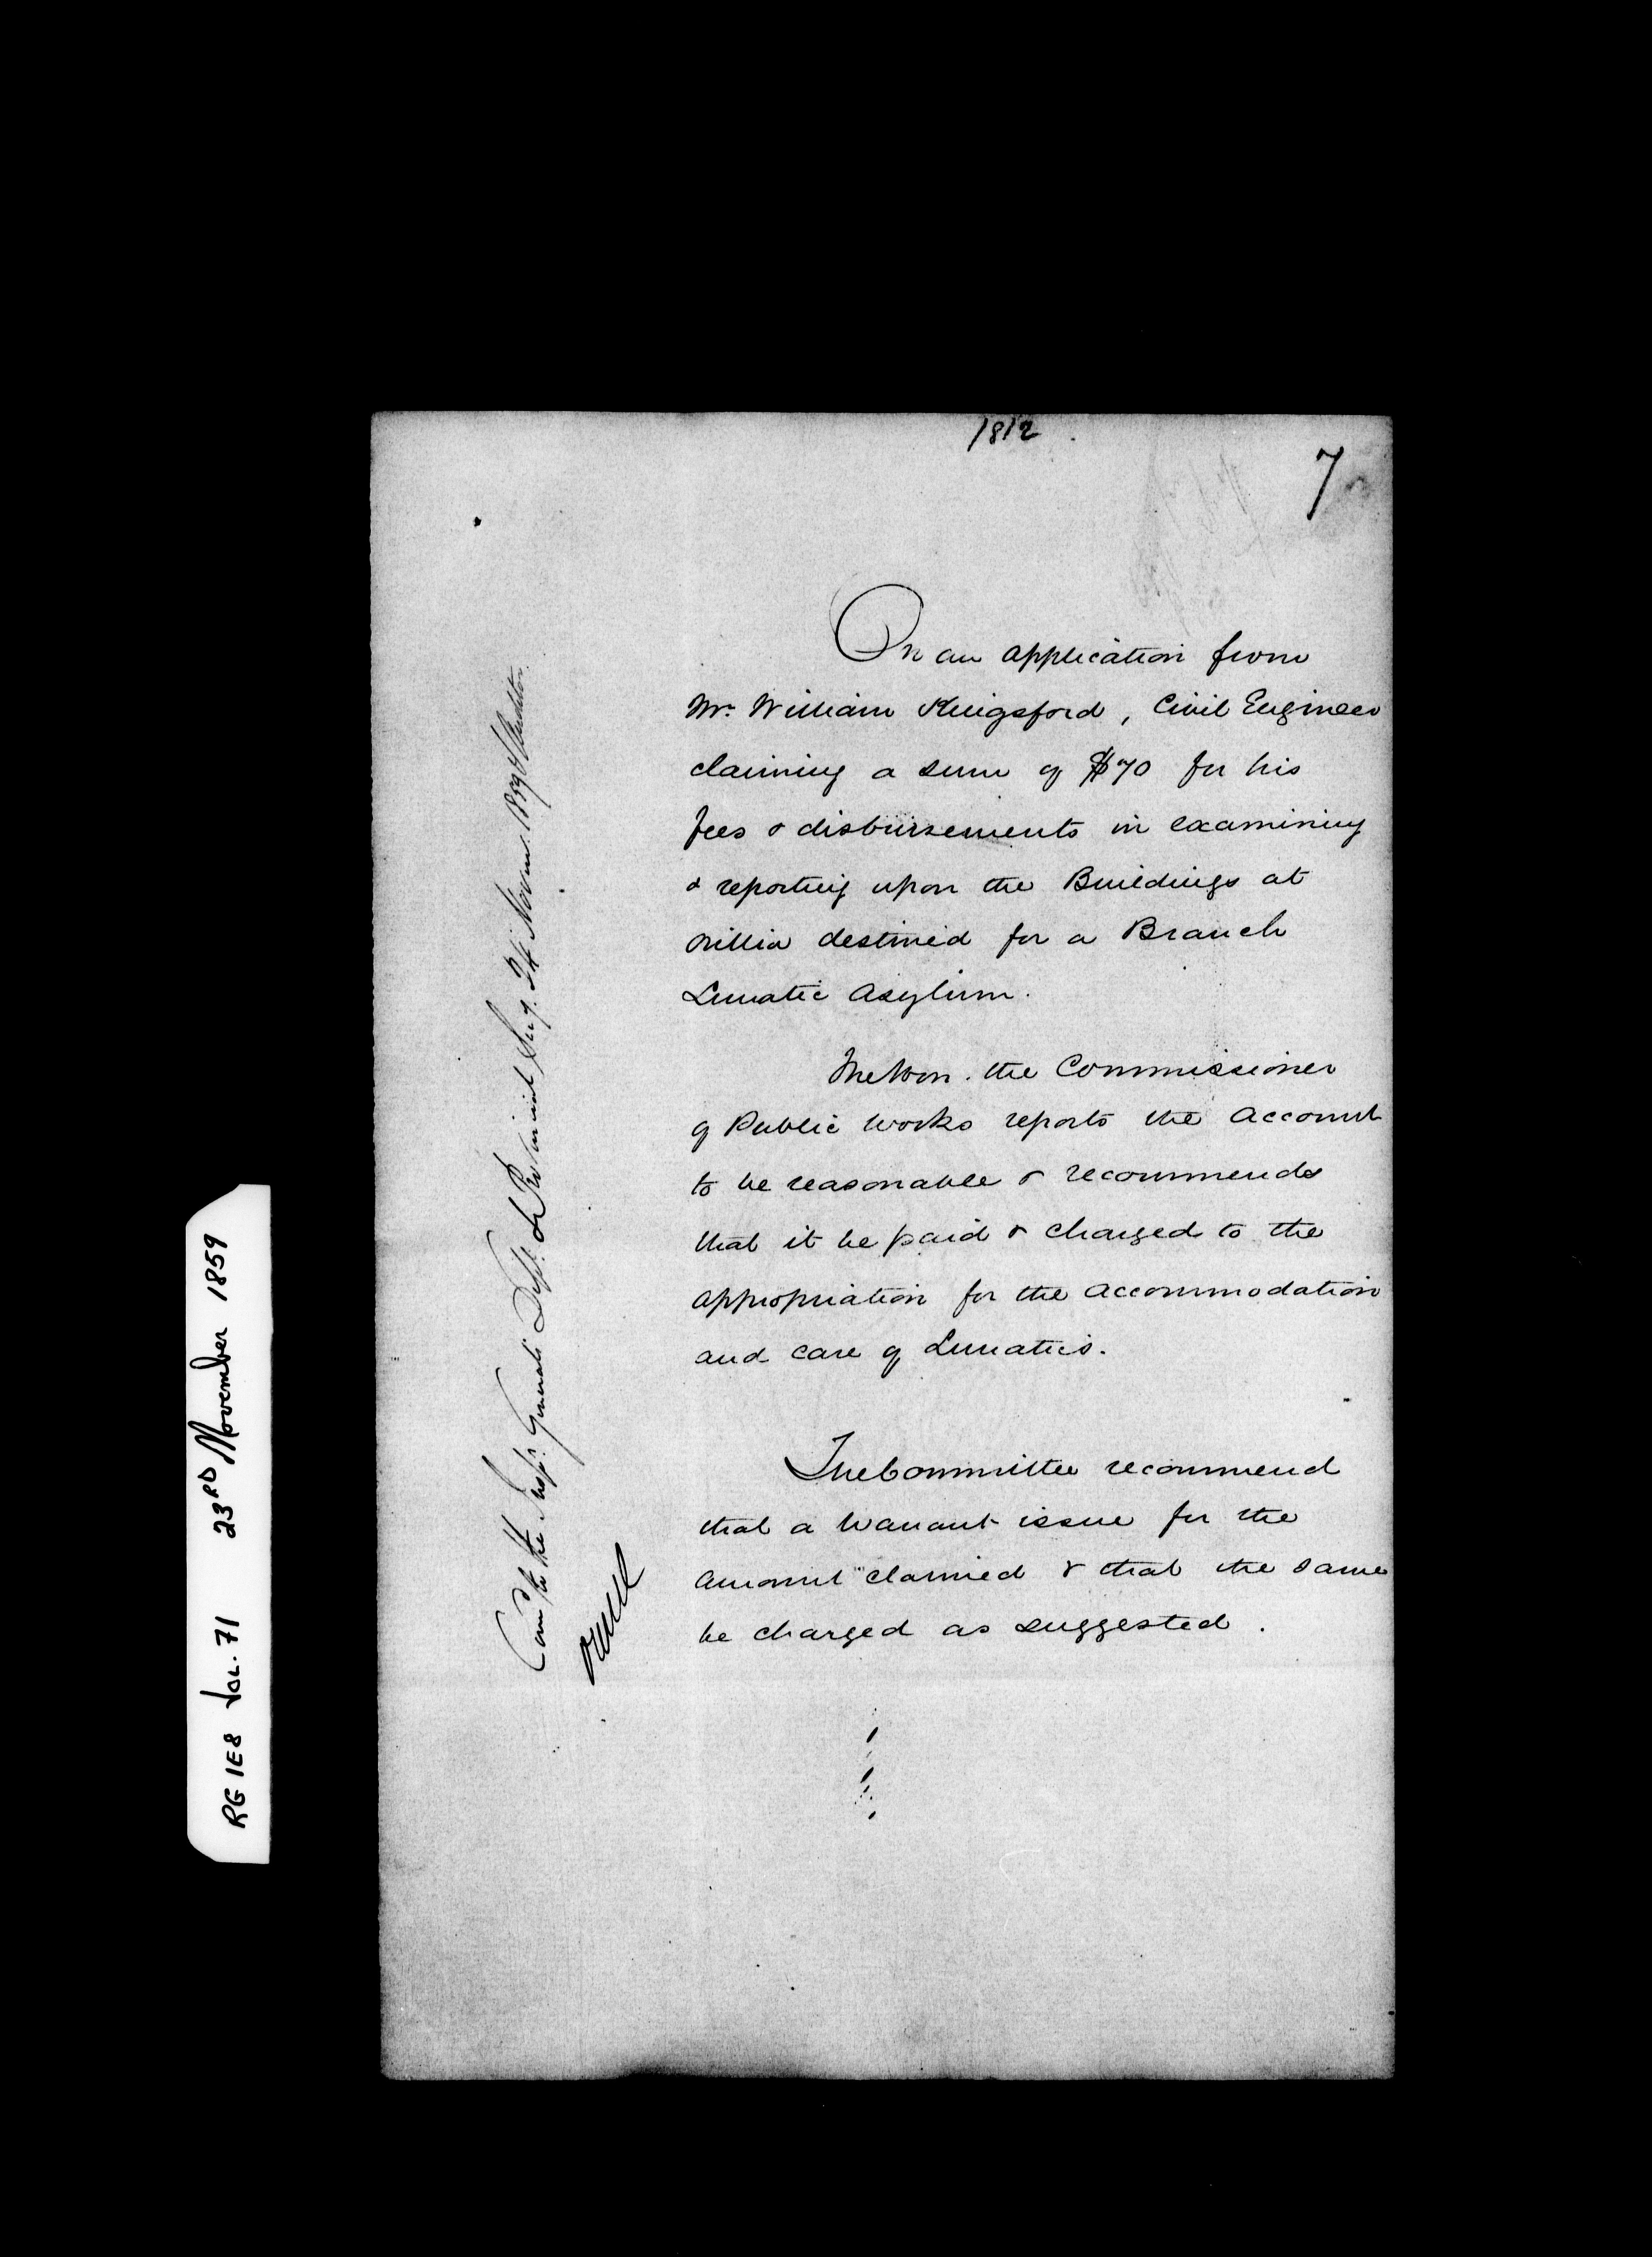 1812
7
On an application from
Mr. William Kingsford, Civil Engineer
claiming a sum of $70 for his
fees & disbursements in examining
& reporting upon the Buildings at
Orillia destined for a Branch
Lunatic Asylum.
The Hon. the Commissioner
of Public Works reports the account
to be reasonable & recommends
that it be paid & charged to the
appropriation for the accommodation
and care of Lunatics.
The Committee recommend
that a Warrant issue for the
amount claimed & that the same
be charged as suggested.
Com to the Inspr. Generals Dept. & Provincial Secy. 24 Novem. 1859 & Auditor
RG 1E8 Vol. 71 23RD November 1859